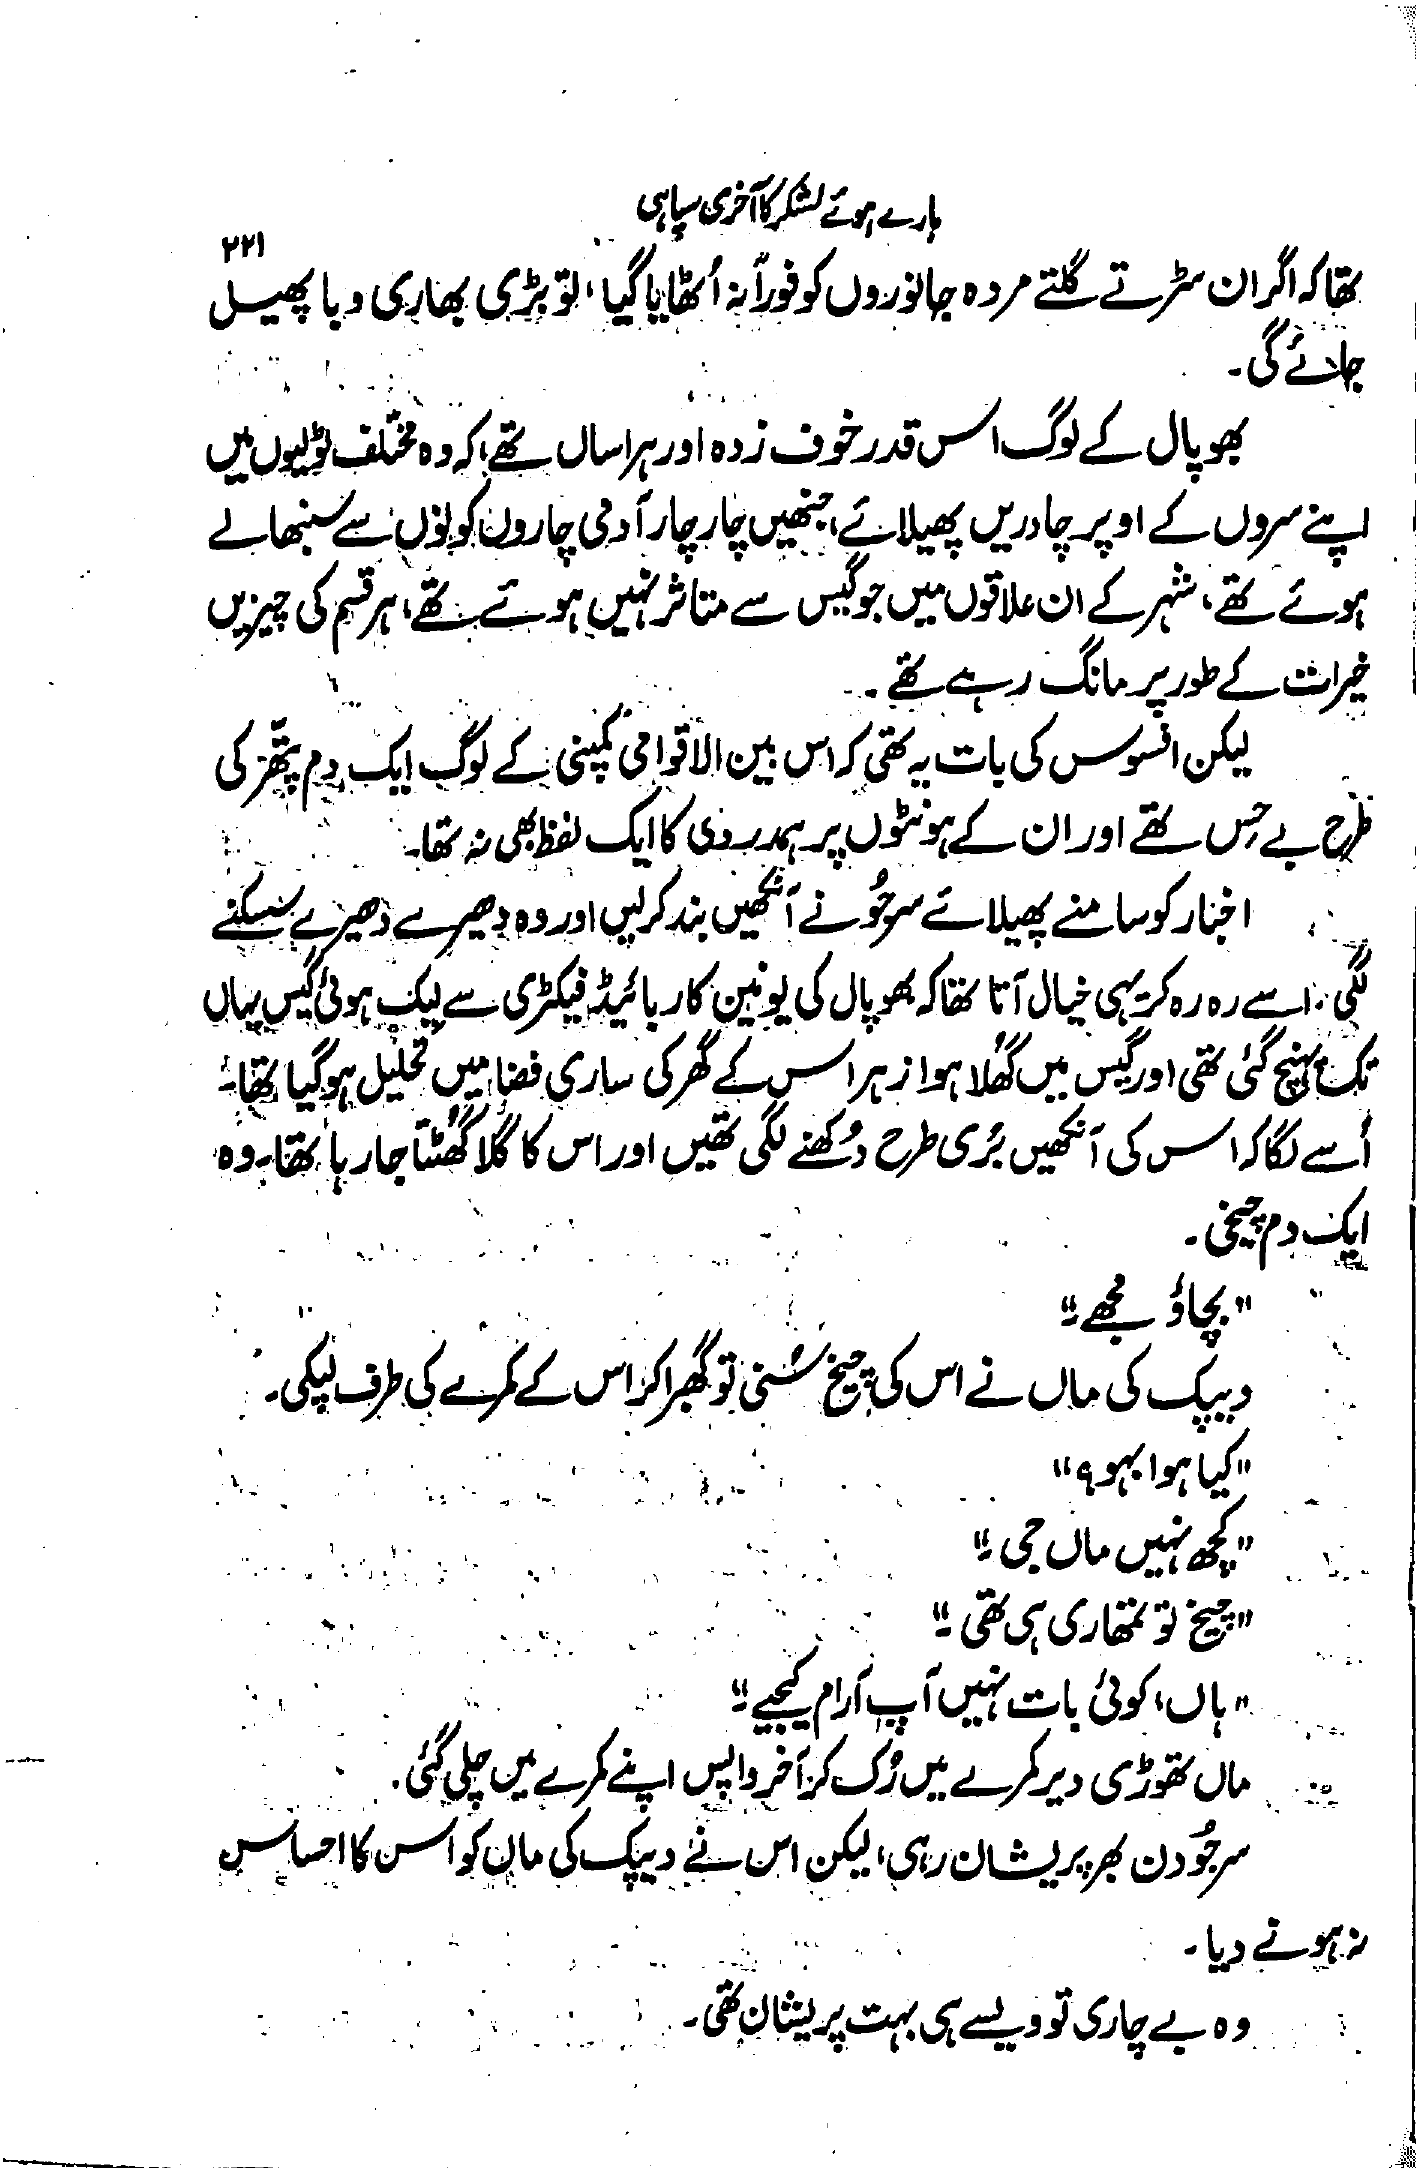 ہارے ہوئے لشکر کا آخری سپاہی
۲۲۱
تھا کہ اگر ان سڑتے گلتے مردہ جانوروں کو فوراً نہ اُٹھایا گیا، تو بڑی بھاری وبا پھیل
جائے گی۔
بھوپال کے لوگ اس قدر خوف زدہ اور ہراساں تھے، کہ وہ مختلف ٹولیوں میں
اپنے سروں کے اوپر چادریں پھیلائے، جنھیں چار چار آدمی چاروں کونوں سے سنبھالے
ہوئے تھے، شہر کے ان علاقوں میں جو گیس سے متاثر نہیں ہوئے تھے، ہر قسم کی چیزیں
خیرات کے طور پر مانگ رہے تھے۔
لیکن افسوس کی بات یہ تھی کہ اس بین الاقوامی کمپنی کے لوگ ایک دم پتھّر کی
طرح بے حِس تھے اور ان کے ہونٹوں پر ہمدردی کا ایک لفظ بھی نہ تھا۔
اخبار کو سامنے پھیلائے سرجُو نے آنکھیں بند کر لیں اور وہ دھیرے دھیرے سسکنے
لگی۔ اسے رہ رہ کر یہی خیال آتا تھا کہ بھوپال کی یونین کاربائیڈ فیکٹری سے لیک ہوئی گیس یہاں
تک پہنچ گئی تھی اور گیس میں گھُلا ہوا زہر اس کے گھر کی ساری فضا میں تحلیل ہو گیا تھا۔
اُسے لگا کہ اس کی آنکھیں بُری طرح دُکھنے لگی تھیں اور اس کا گلا گھُٹتا جا رہا تھا۔ وہ
ایک دم چیخی۔
"بچاؤ مجھے۔"
دیپک کی ماں نے اس کی چیخ سُنی تو گھبرا کر اس کے کمرے کی طرف لپکی۔
"کیا ہوا بہو؟"
"کچھ نہیں ماں جی۔"
"چیخ تو تمھاری ہی تھی۔"
"ہاں، کوئی بات نہیں آپ آرام کیجیے۔"
ماں تھوڑی دیر کمرے میں رُک کر آخر واپس اپنے کمرے میں چلی گئی۔
سرجُو دن بھر پریشان رہی، لیکن اس نے دیپک کی ماں کو اس کا احساس
نہ ہونے دیا۔
وہ بے چاری تو ویسے ہی بہت پریشان تھی۔